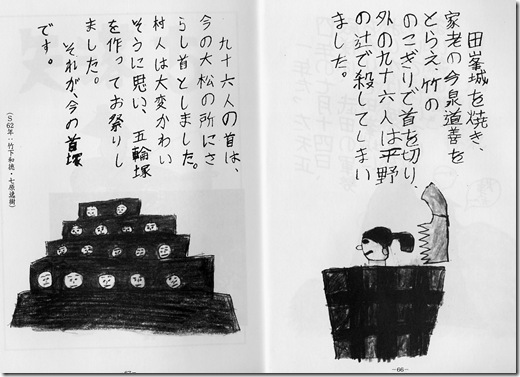 田峯城を焼き、
家老の今泉道善を
とらえ、竹の
のこぎりで首を切り、
外の九十六人は平野
の辻で殺してしまい
ました。
-66-
九十六人の首は、
今の大松の所にさ
らし首としました。
村人は大変かわい
そうに思い、五輪塚
を作ってお祭りし
ました。
それが、今の首塚
です。
(S62年::竹下和徳・七原逸樹)
-67-